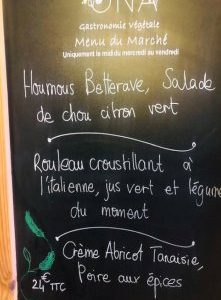 ONA
Gastronomie végétale
Menu du Marché
Uniquement le midi du mercredi au vendredi
Houmous Betterave, Salade
de chou citron vert
Rouleau croustillant à
l'italienne, jus vert et légume
du moment
Crème Abricot Tanaisie,
Poire aux épices
24€ TTC